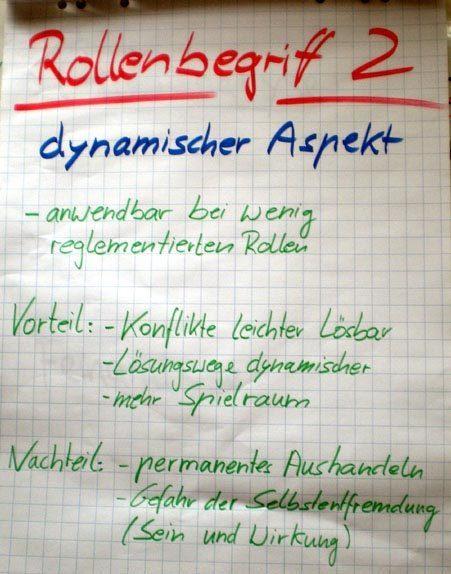 Rollenbegriff 2
dynamischer Aspekt
- anwendbar bei wenig
reglementierten Rollen
Vorteil: - Konflikte leichter lösbar
- Lösungswege dynamischer
- mehr Spielraum
Nachteil: - permanentes Aushandeln
- Gefahr der Selbstentfremdung
(Sein und Wirkung)